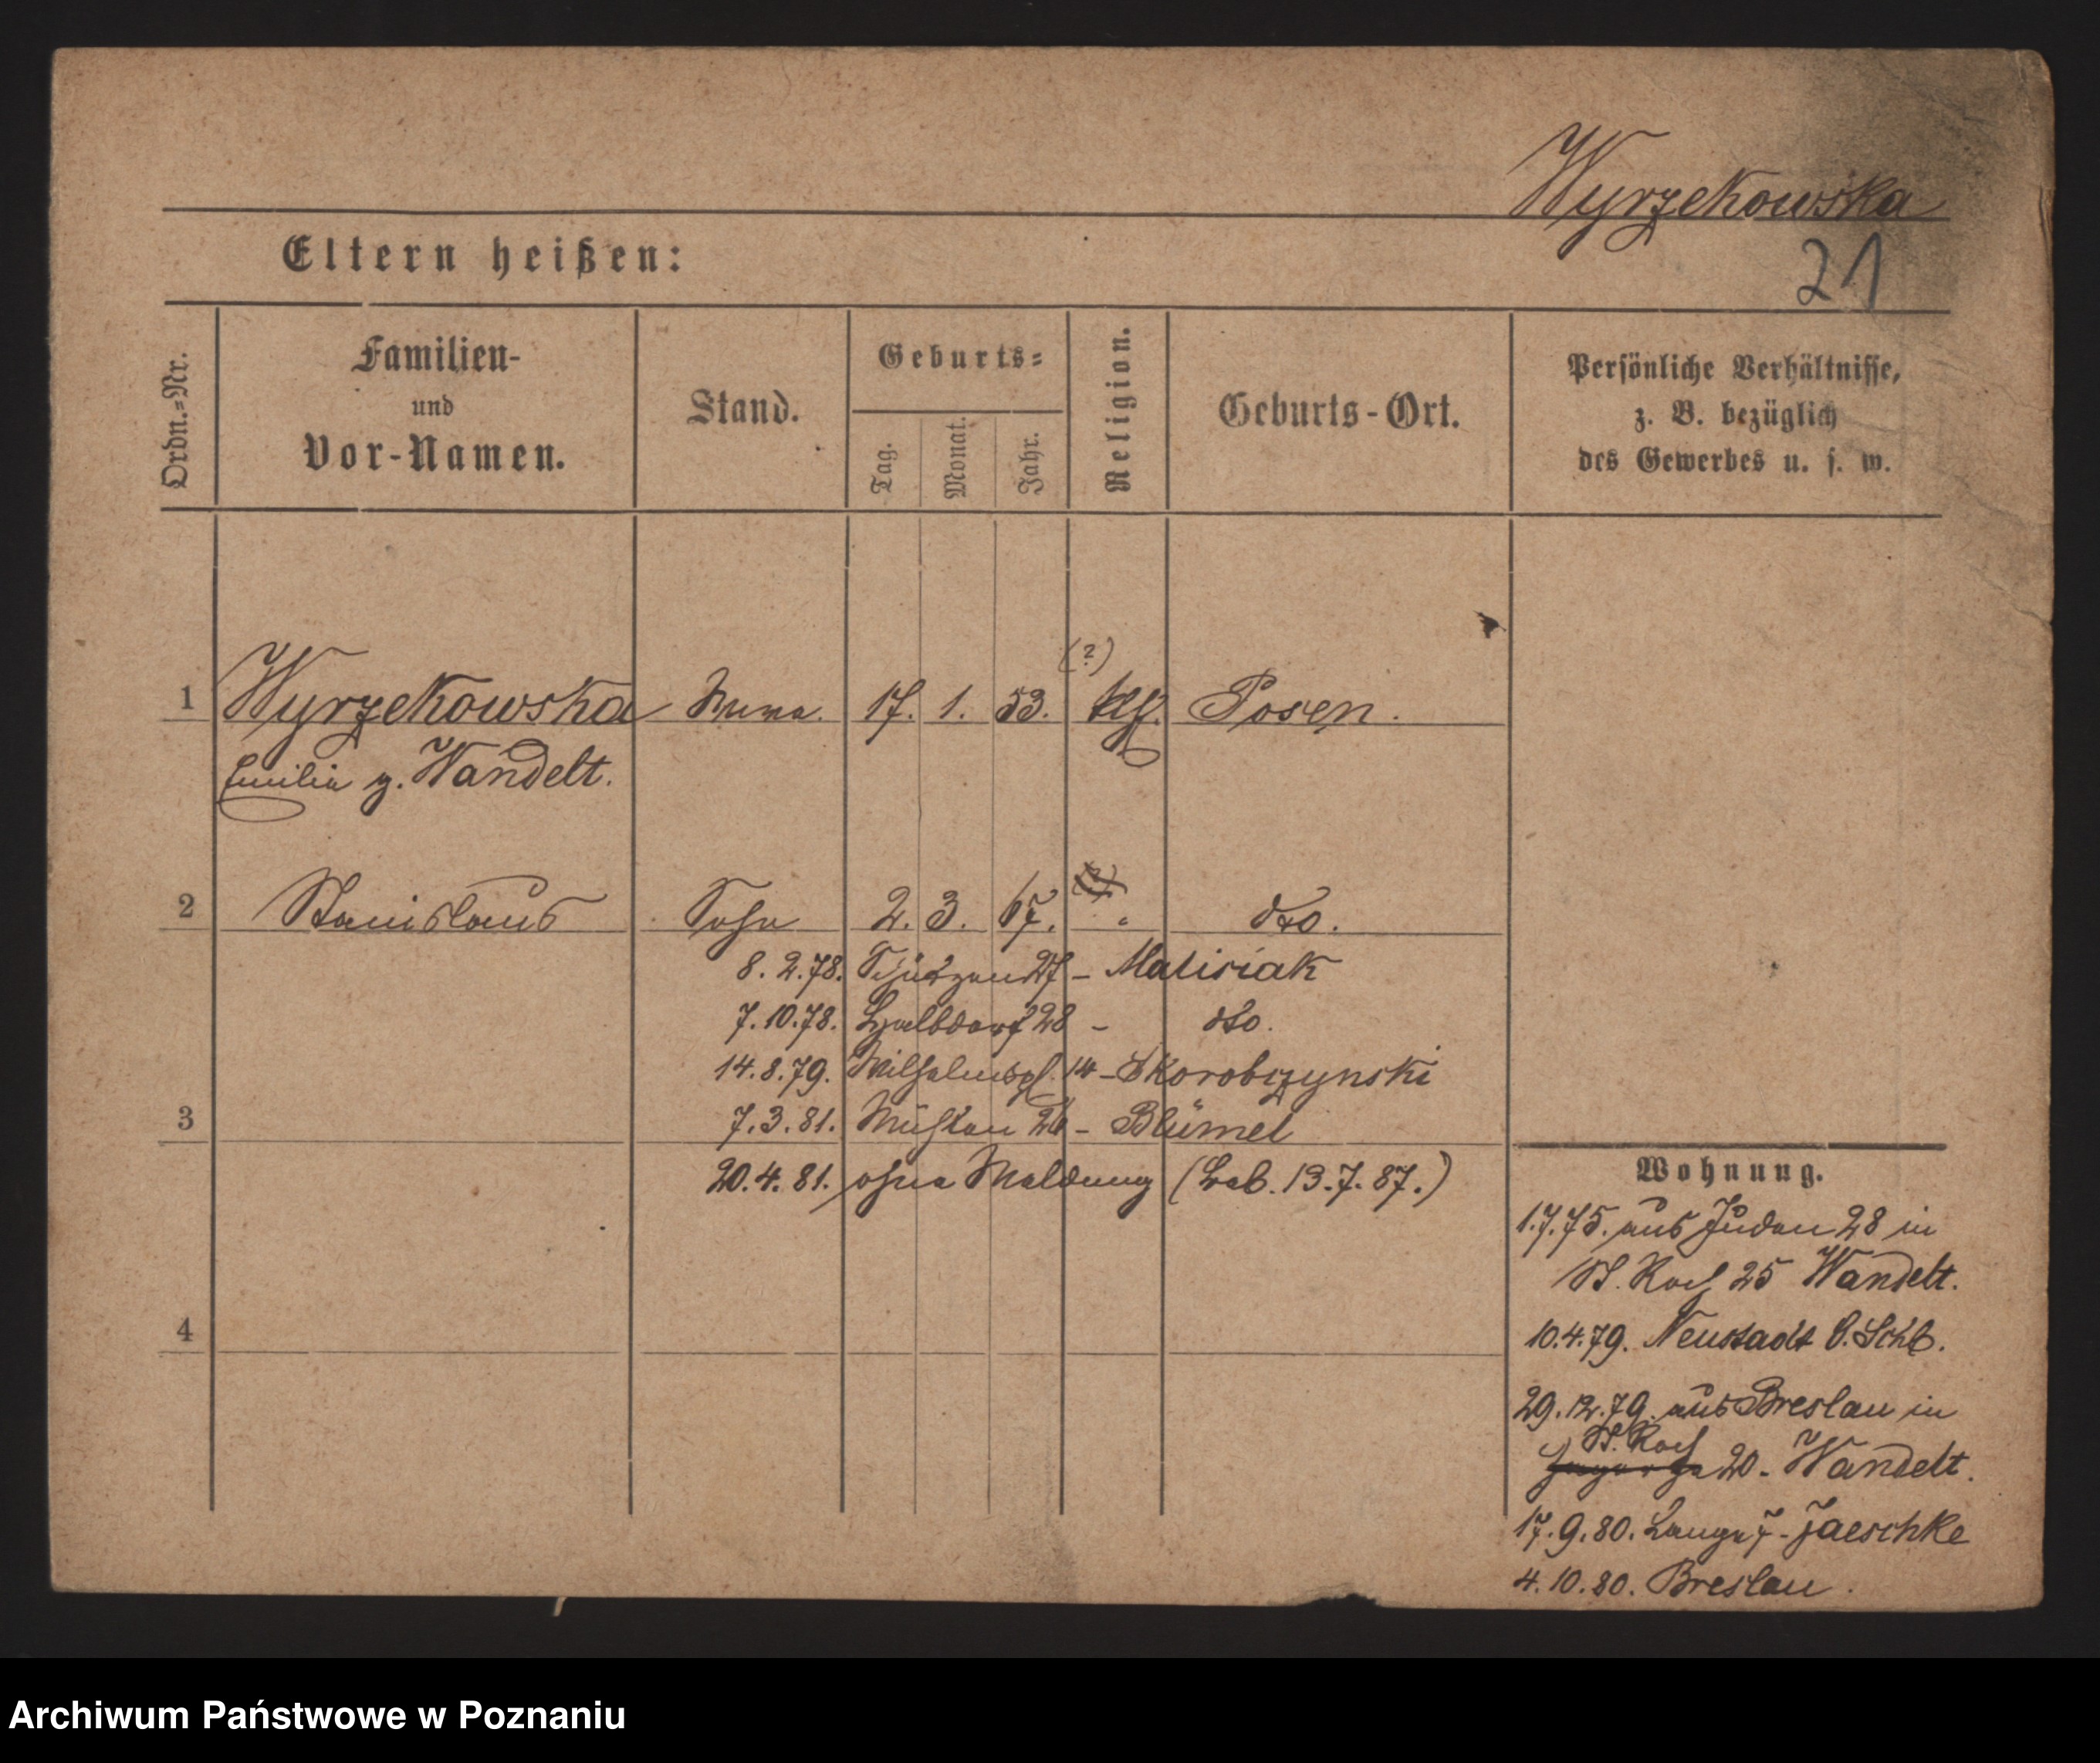 Wyrzekowska
21
Eltern heißen:
Ordn.-Nr.
Familien-
und
Vor-Namen.
Stand.
Geburts-
Tag.
Monat.
Jahr.
Religion.
Geburts-Ort.
Persönliche Verhältnisse,
z. B. bezüglich
des Gewerbes u. s. w.
(?)
1 Wyrzekowska 17. 1. 53. Posen.
Emilie g. Wandelt.
2 Stanislaus Sohn 2. 3. 67. " dto.
8. 2. 78. Schützen 27 - Matisiak
7. 10. 78. Halbdorf 28 - dto.
14. 8. 79. Wilhelmspl. 14 - Skorobczynski
3
7. 3. 81. Mühlen 26 - Blümel
20. 4. 81. ohne Meldung (Leb. 13. 7. 87.)
4
Wohnung.
1. 7. 75. aus Juden 28 in
St. Roch 25 Wandelt.
10. 4. 79. Neustadt O. Schl.
29. 12. 79. aus Breslau in
St. Roch
20 - Wandelt.
17. 9. 80. Lange 7 - Jaeschke
4. 10. 80. Breslau.
Archiwum Państwowe w Poznaniu